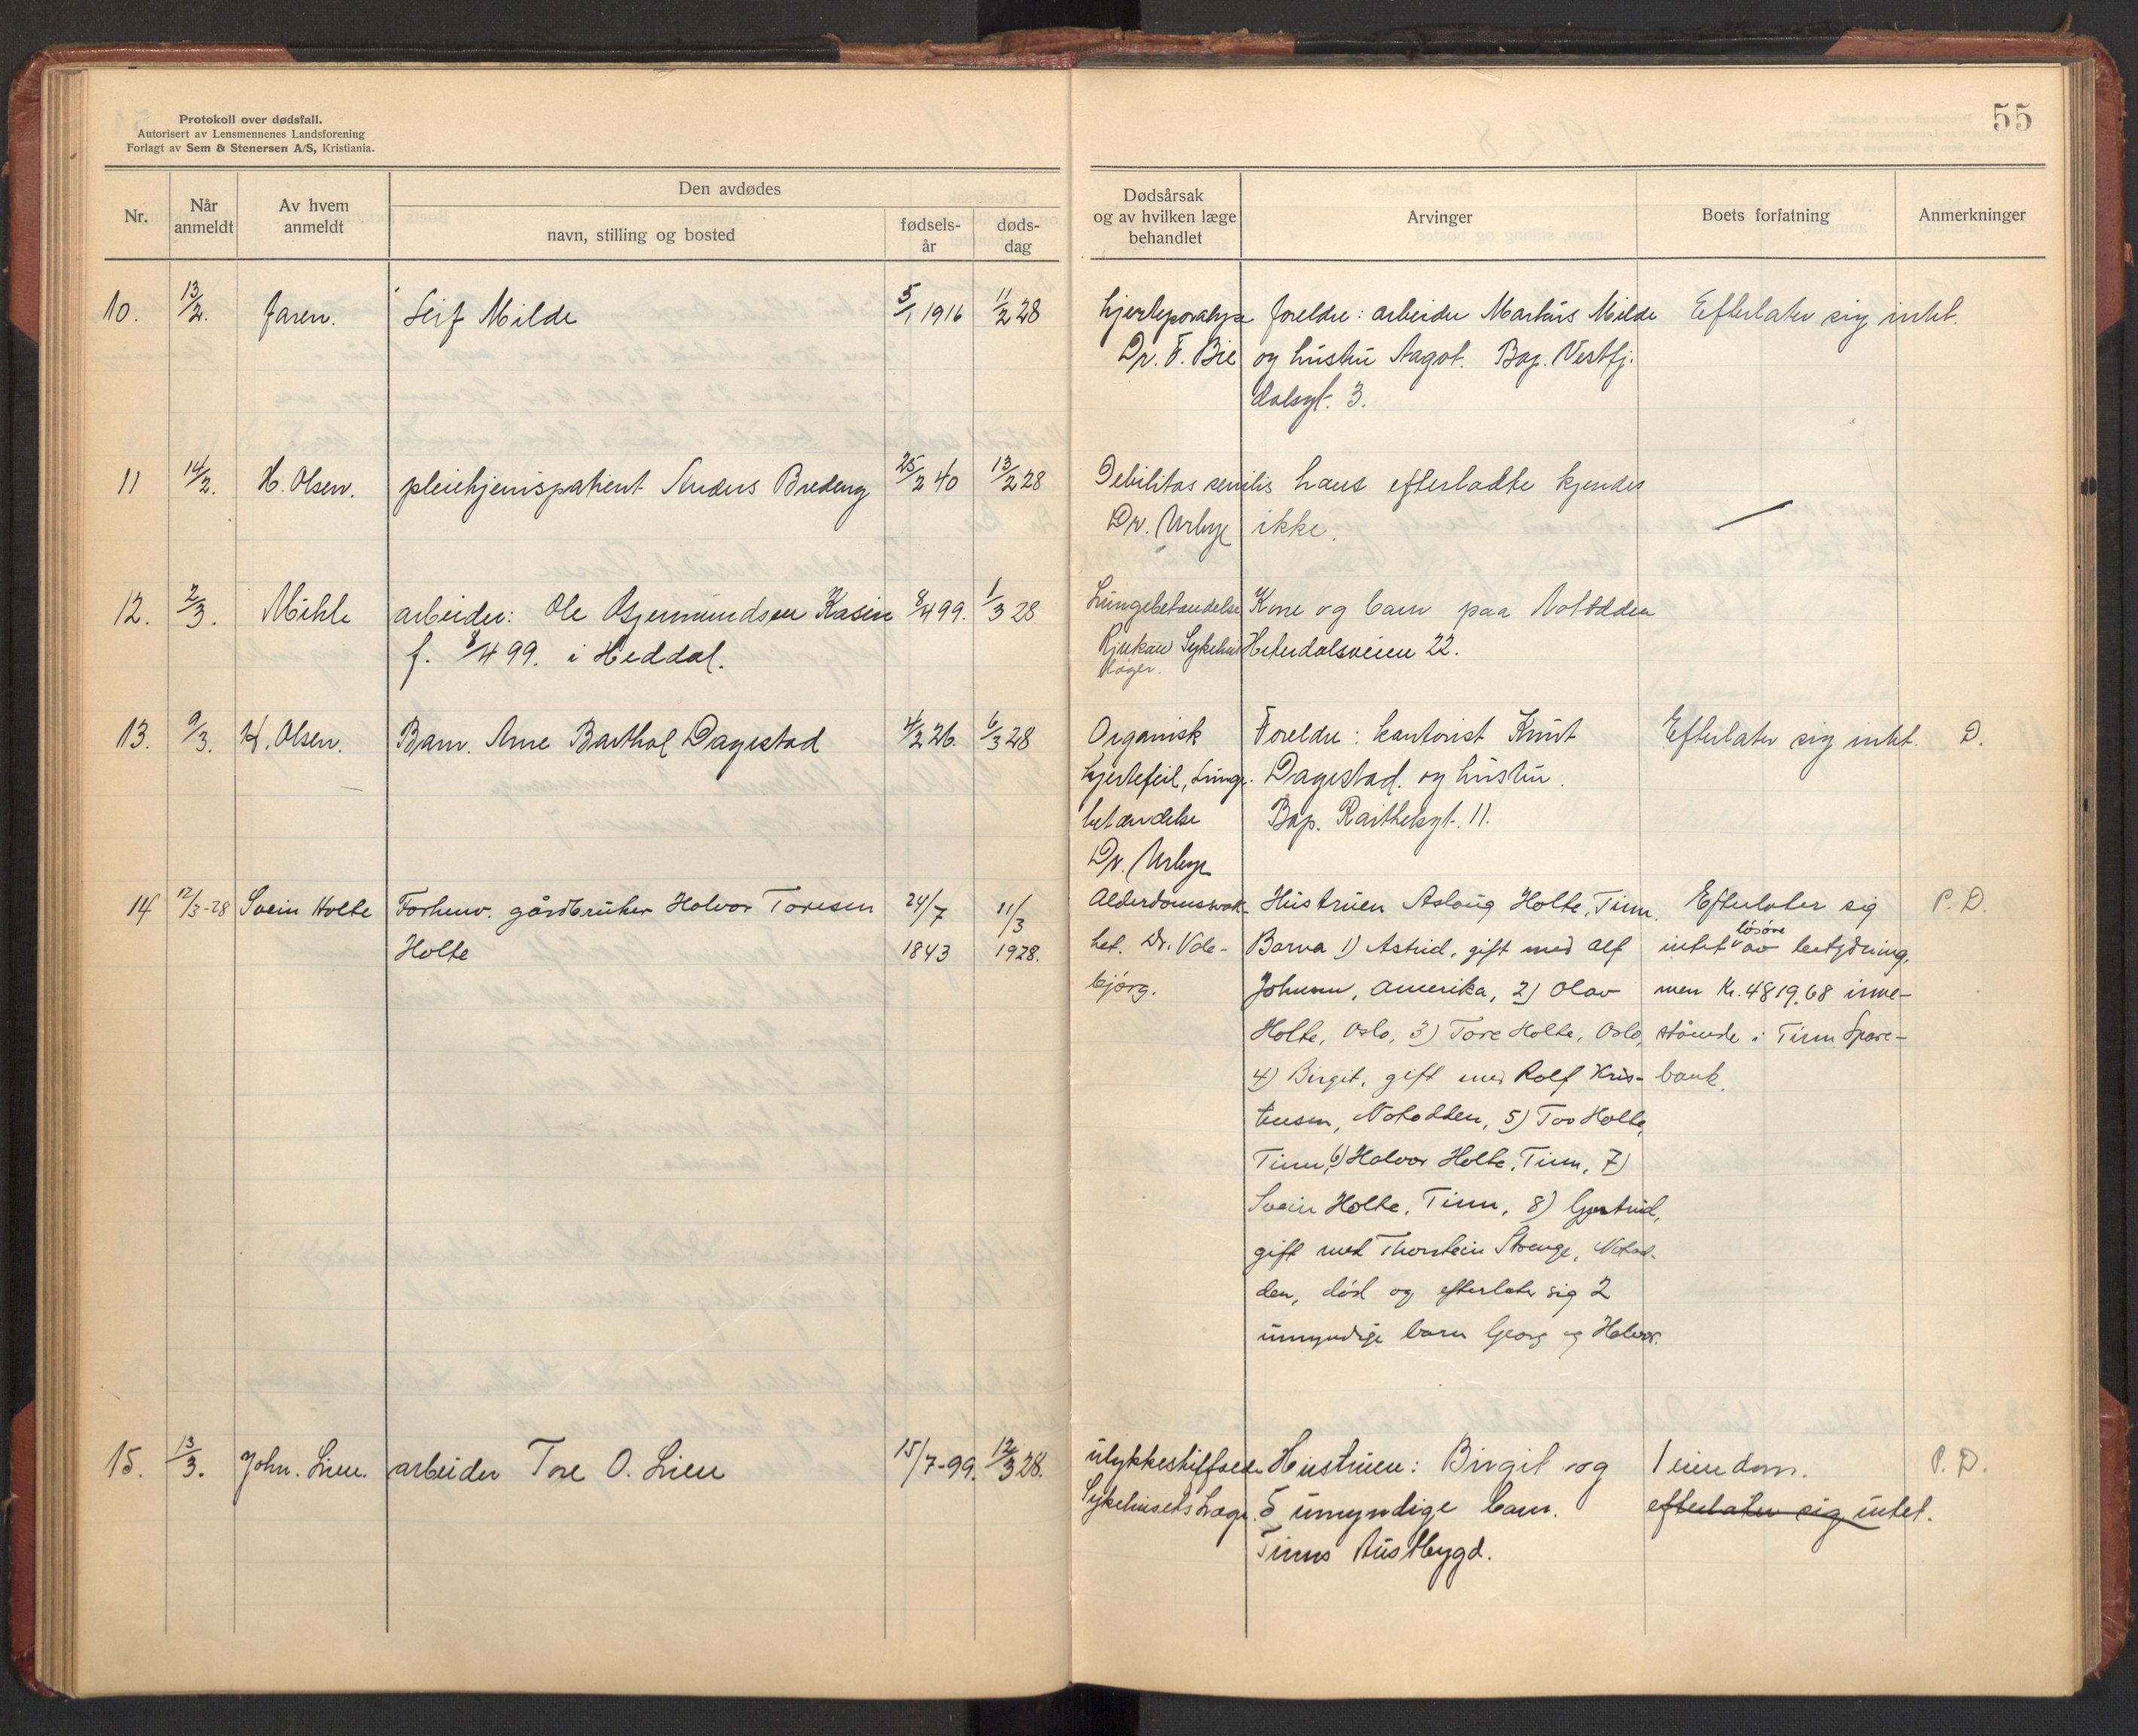 Protokoll over dødsfall.
Autorisert av Lensmennenes Landsforening
Forlagt av Sem & Stenersen A/S, Kristiania.
55
Nr.
Når anmeldt
Av hvem anmeldt
Den avdødes
navn, stilling og bosted
fødselsår
dødsdag
Dødsårsak
og av hvilken læge
behandlet
Arvinger
Boets forfatning
Anmerkninger
10. 13/2. faren. Leif Milde 5/1 1916 11/2 28
Dr. F. Bie
foreldre: arbeider Markus Milde
og hustru Aagot. Bop. Vestfj.
dalsgt. 3.
Efterlater sig intet.
11 14/2. H. Olsen. pleiehjemspatient Anders 25/2 40 13/2 28
Debilitas senilis
Dr. Urbye
hans efterladte kjendes
ikke.
12. 2/3. Mihle arbeider: Ole Gjermundsen Kasin 8/4 99. 1/3 28
f. 8/4 99. i Heddal.
Lungebetændelse
Rjukan Sykehus
læger.
Kone og barn paa Notodden
Heterdalsveien 22.
13. 9/3. H. Olsen. Barn. Arne Barthol Dagestad 4/2 26. 6/3 28
Organisk
hjertefeil, Lunge-
betændelse
Dr. Urbye
Foreldre: kontorist Knut
Dagestad. og hustru.
Bop. 11.
Efterlater sig intet. D.
14 12/3-28 Svein Holte Forhenv. gårdbruker Halvor Toresen 24/7 11/3
Holte 1843 1928.
Alderdomssvak-
het. Dr. Vole-
bjørg.
Hustruen Aslaug Holte, Tinn.
Barna 1) Astrid, gift med Alf
Johnsen, Amerika, 2) Olav
Holte, Oslo, 3) Tore Holte, Oslo,
4) Birgit, gift med Rolf Kris-
tensen, Notodden, 5) Tov Holte,
Tinn, 6) Halvor Holte, Tinn, 7)
Svein Holte, Tinn, 8) Gjertrud,
gift med Thorstein Stenge, Notod-
den, død og efterlater sig 2
umyndige barn Georg og Halvor.
Efterlater sig
intet løsøre av betydning,
men Kr. 4819,68 inne-
stående i Tinn Spare-
bank.
P. D.
15. 13/3. John. Lien. arbeider Tore O. Lien 15/7-99. 12/3 28.
ulykkestilfælde
Sykehusets Læge.
Hustruen: Birgit og
5 umyndige barn.
Tinns Austbygd.
1 eiendom.
efterlater sig intet.
P. D.